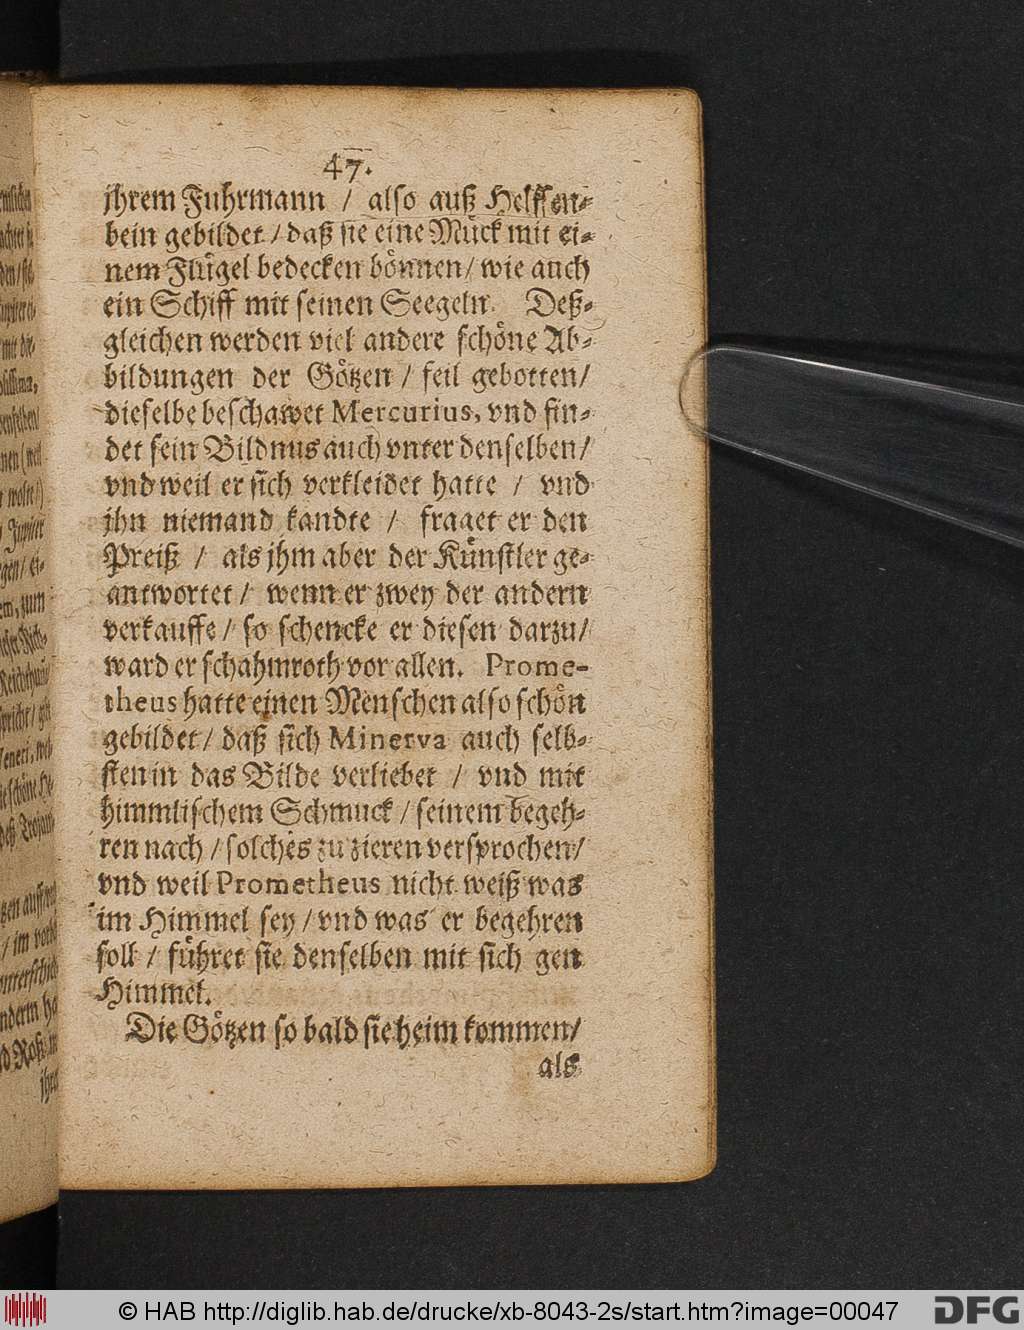 47.
jhrem Fuhrmann / also auß Helffen-
bein gebildet / daß sie eine Mück mit ei-
nem Flügel bedecken bönnen / wie auch
ein Schiff mit seinen Seegeln. Deß-
gleichen werden viel andere schöne Ab-
bildungen der Götzen / feil gebotten /
dieselbe beschawet Mercurius, vnd fin-
det sein Bildnus auch vnter denselben /
vnd weil er sich verkleidet hatte / vnd
jhn niemand kandte / fraget er den
Preiß / als jhm aber der Künstler ge-
antwortet / wenn er zwey der andern
verkauffe / so schencke er diesen darzu /
ward er schahmroth vor allen. Prome-
theus hatte einen Menschen also schön
gebildet / daß sich Minerva auch selb-
sten in das Bilde verliebet / vnd mit
himmlischem Schmuck / seinem begeh-
ren nach / solches zu zieren versprochen /
vnd weil Prometheus nicht weiß was
im Himmel sey / vnd was er begehren
soll / führet sie denselben mit sich gen
Himmel.
Die Götzen so bald sie heim kommen /
als
© HAB http://diglib.hab.de/drucke/xb-8043-2s/start.htm?image=00047
DFG